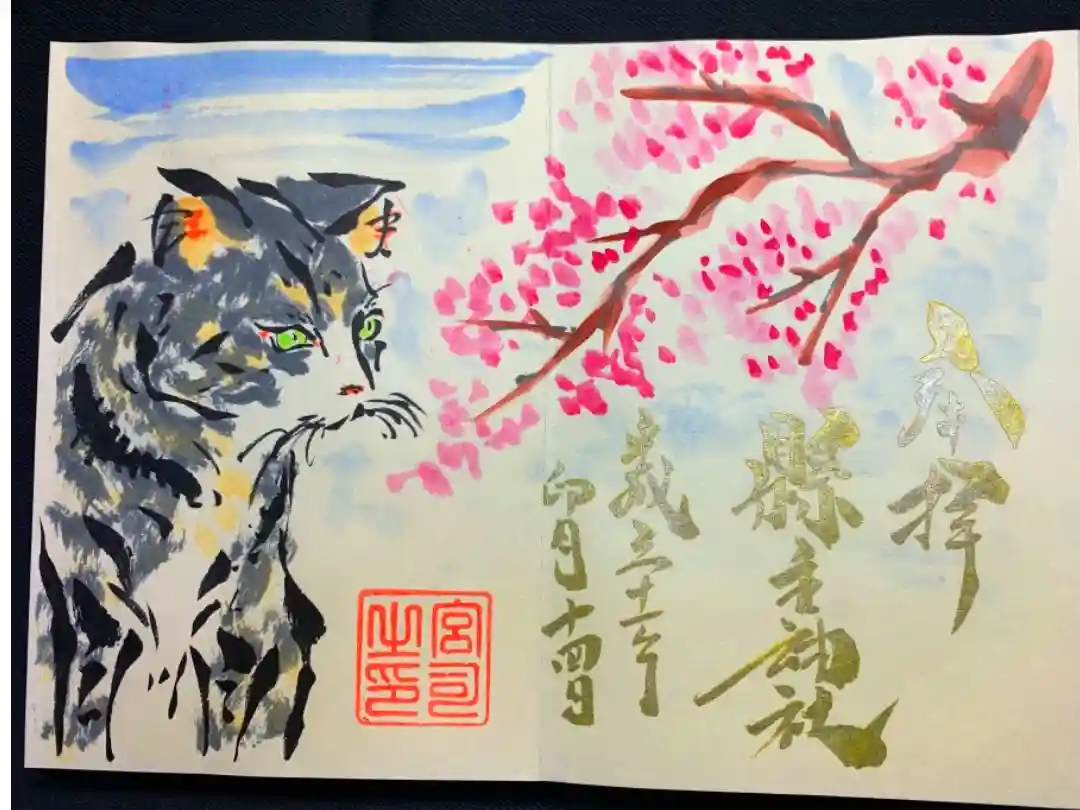 奉拝
縣主神社
歳三十一年
卯月十四日
宮司之印